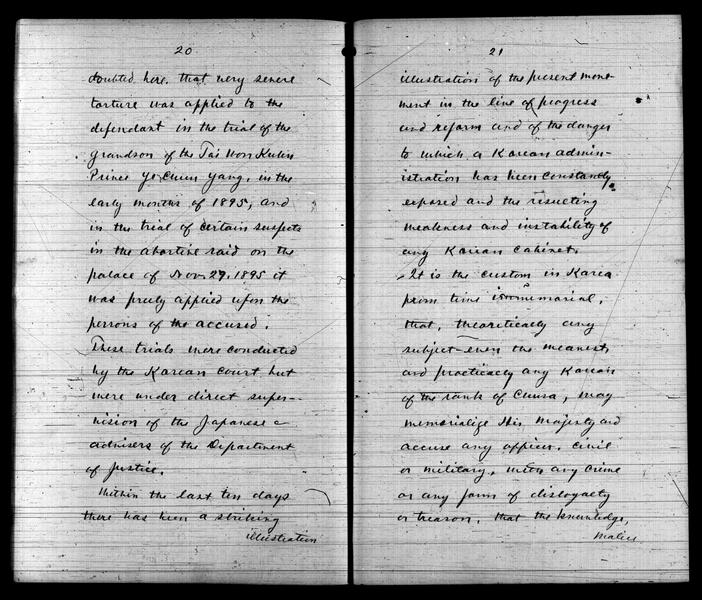 20
doubted here that very severe
torture was applied to the
defendant in the trial of the
grandson of the Tai Won Kuhn
Prince Ye Chun Yang, in the
early months of 1895, and
in the trial of certain suspects
in the abortive raid on the
palace of Nov. 27, 1895 it
was freely applied upon the
persons of the accused.
These trials were conducted
by the Korean court but
were under direct super-
vision of the Japanese
advisers of the Department
of Justice.
Within the last ten days
there has been a striking
illustration
21
illustration of the present move-
ment in the line of progress
and reform and of the danger
to which a Korean admin-
istration has been constantly
exposed and the resulting
weakness and instability of
any Korean Cabinet.
It is the custom in Korea
from time immemorial,
that, theoretically any
subject - even the meanest,
and practically any Korean
of the rank of Chusa, may
memorialize His Majesty and
accuse any officer, civil
or military, with any crime
or any form of disloyalty
or treason, that the knowledge,
malice